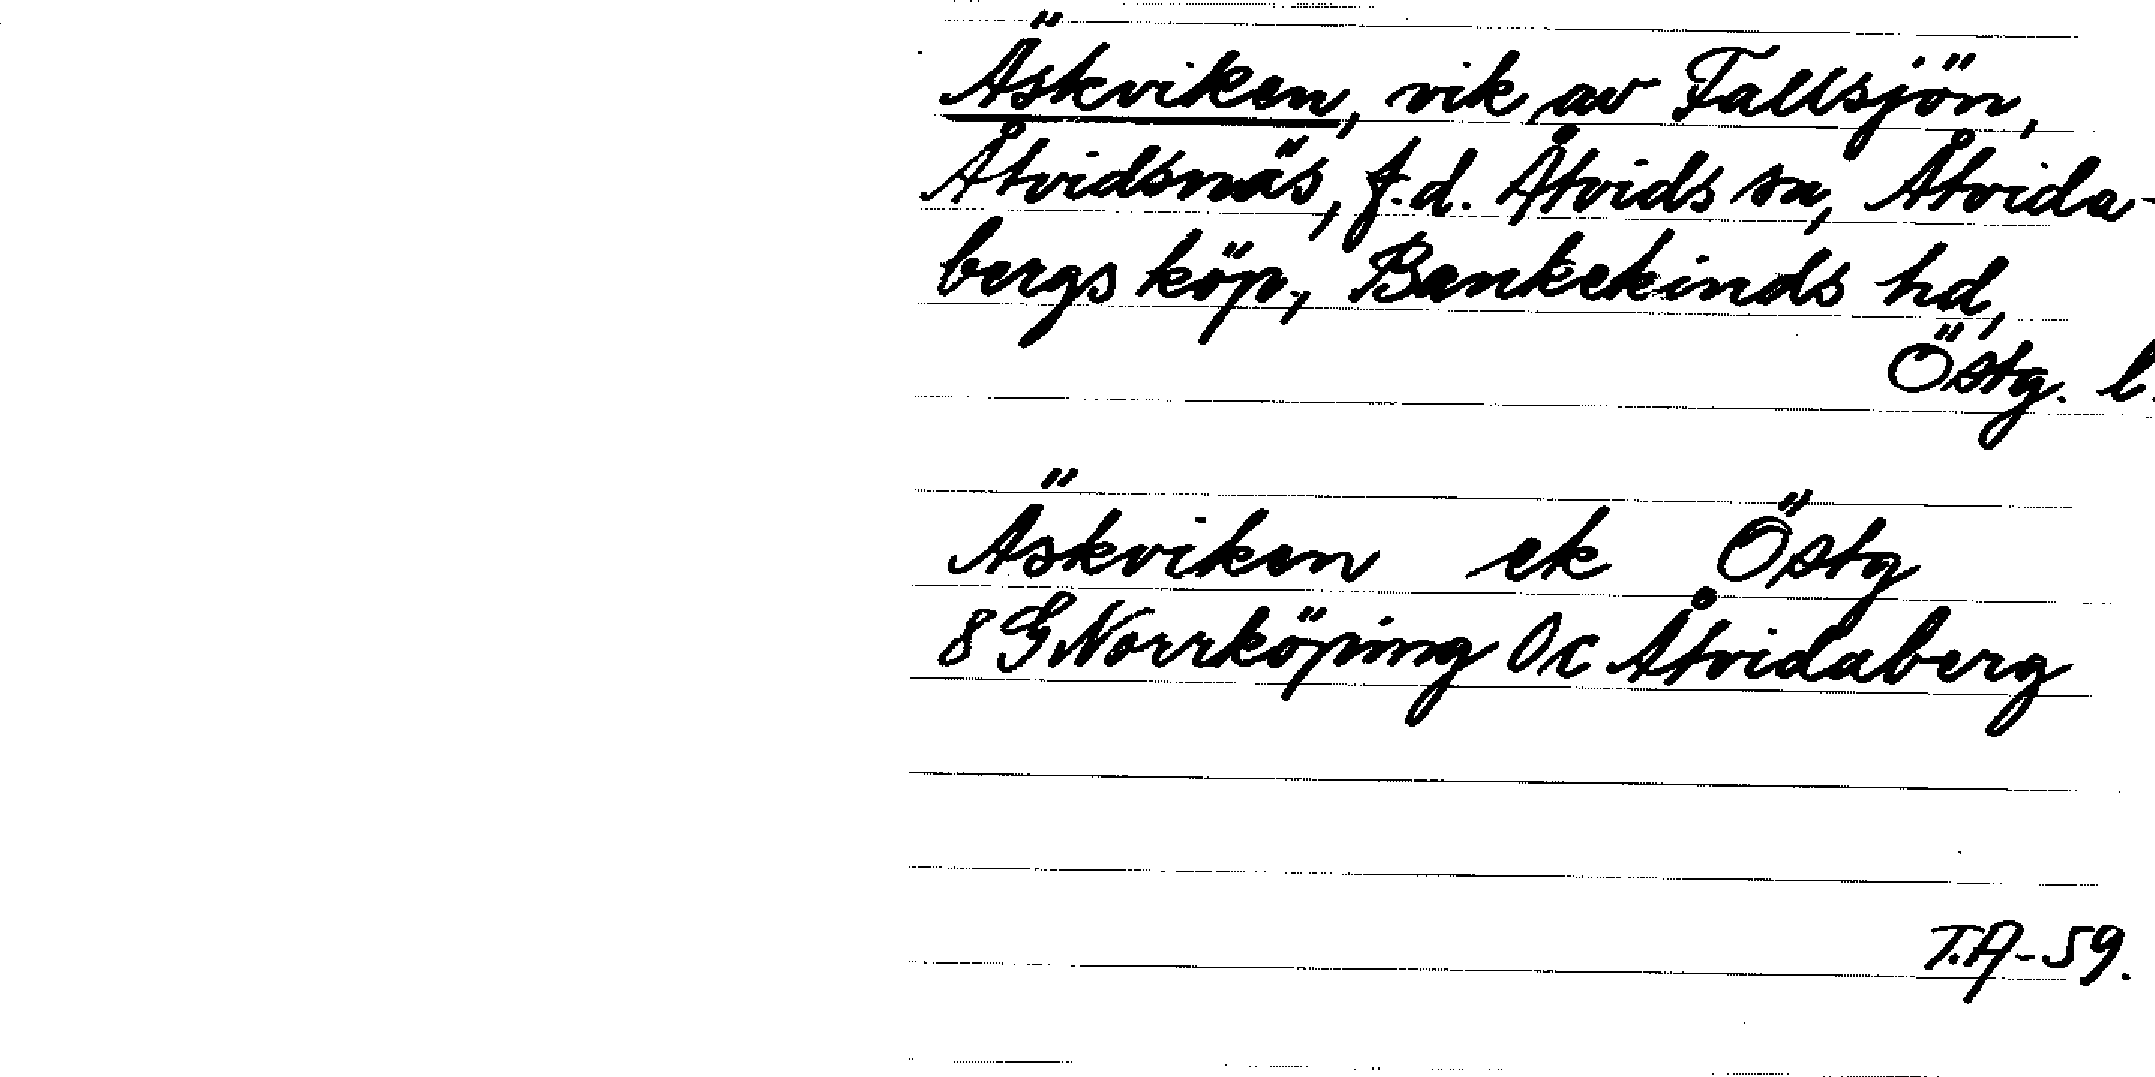 Äskviken, vik av Fallsjön,
Åtvidsnäs, f.d. Åtvids sn, Åtvida-
bergs köp., Bankekinds hd,
Östg. l.
Äskviken ek Östg
8 G Norrköping 0c Åtvidaberg
T.A-59.